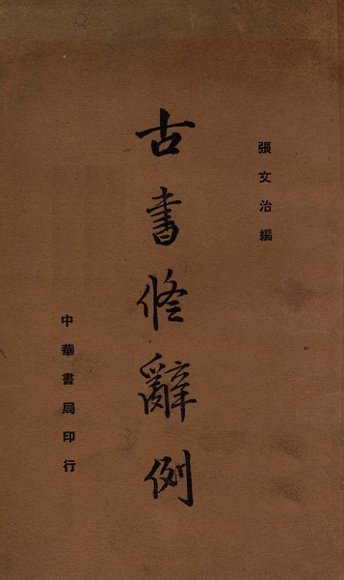 張文治編
古書修辭例
中華書局印行